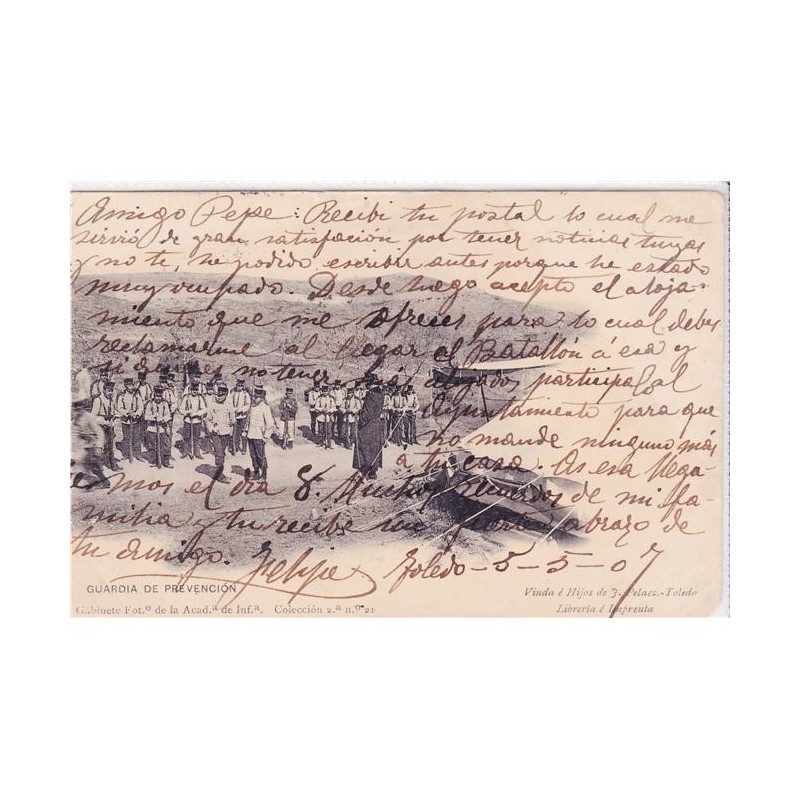 Amigo Pepe: Recibi tu postal lo cual me
sirvió de gran satisfación por tener noticias tuyas
y no te, he podido escribir antes porque he estado
muy ocupado. Desde luego acepto el aloja-
miento que me ofreces para lo cual debes
reclamarme al llegar el Batallón á esa y
si quieres no tener más alojados participalo al
Ayuntamiento para que
no mande ninguno más
a tu casa. A esa llega-
remos el dia 8. Muchos recuerdos de mi fa-
milia y tu recibe un fuerte abrazo de
tu amigo. Felipe Toledo-5-5-07
GUARDIA DE PREVENCIÓN
Viuda é Hijos de J. Pelaez.-Toledo
Gabinete Fot.º de la Acad.ª de Inf.ª. Colección 2.ª n.º 21
Librería é Imprenta